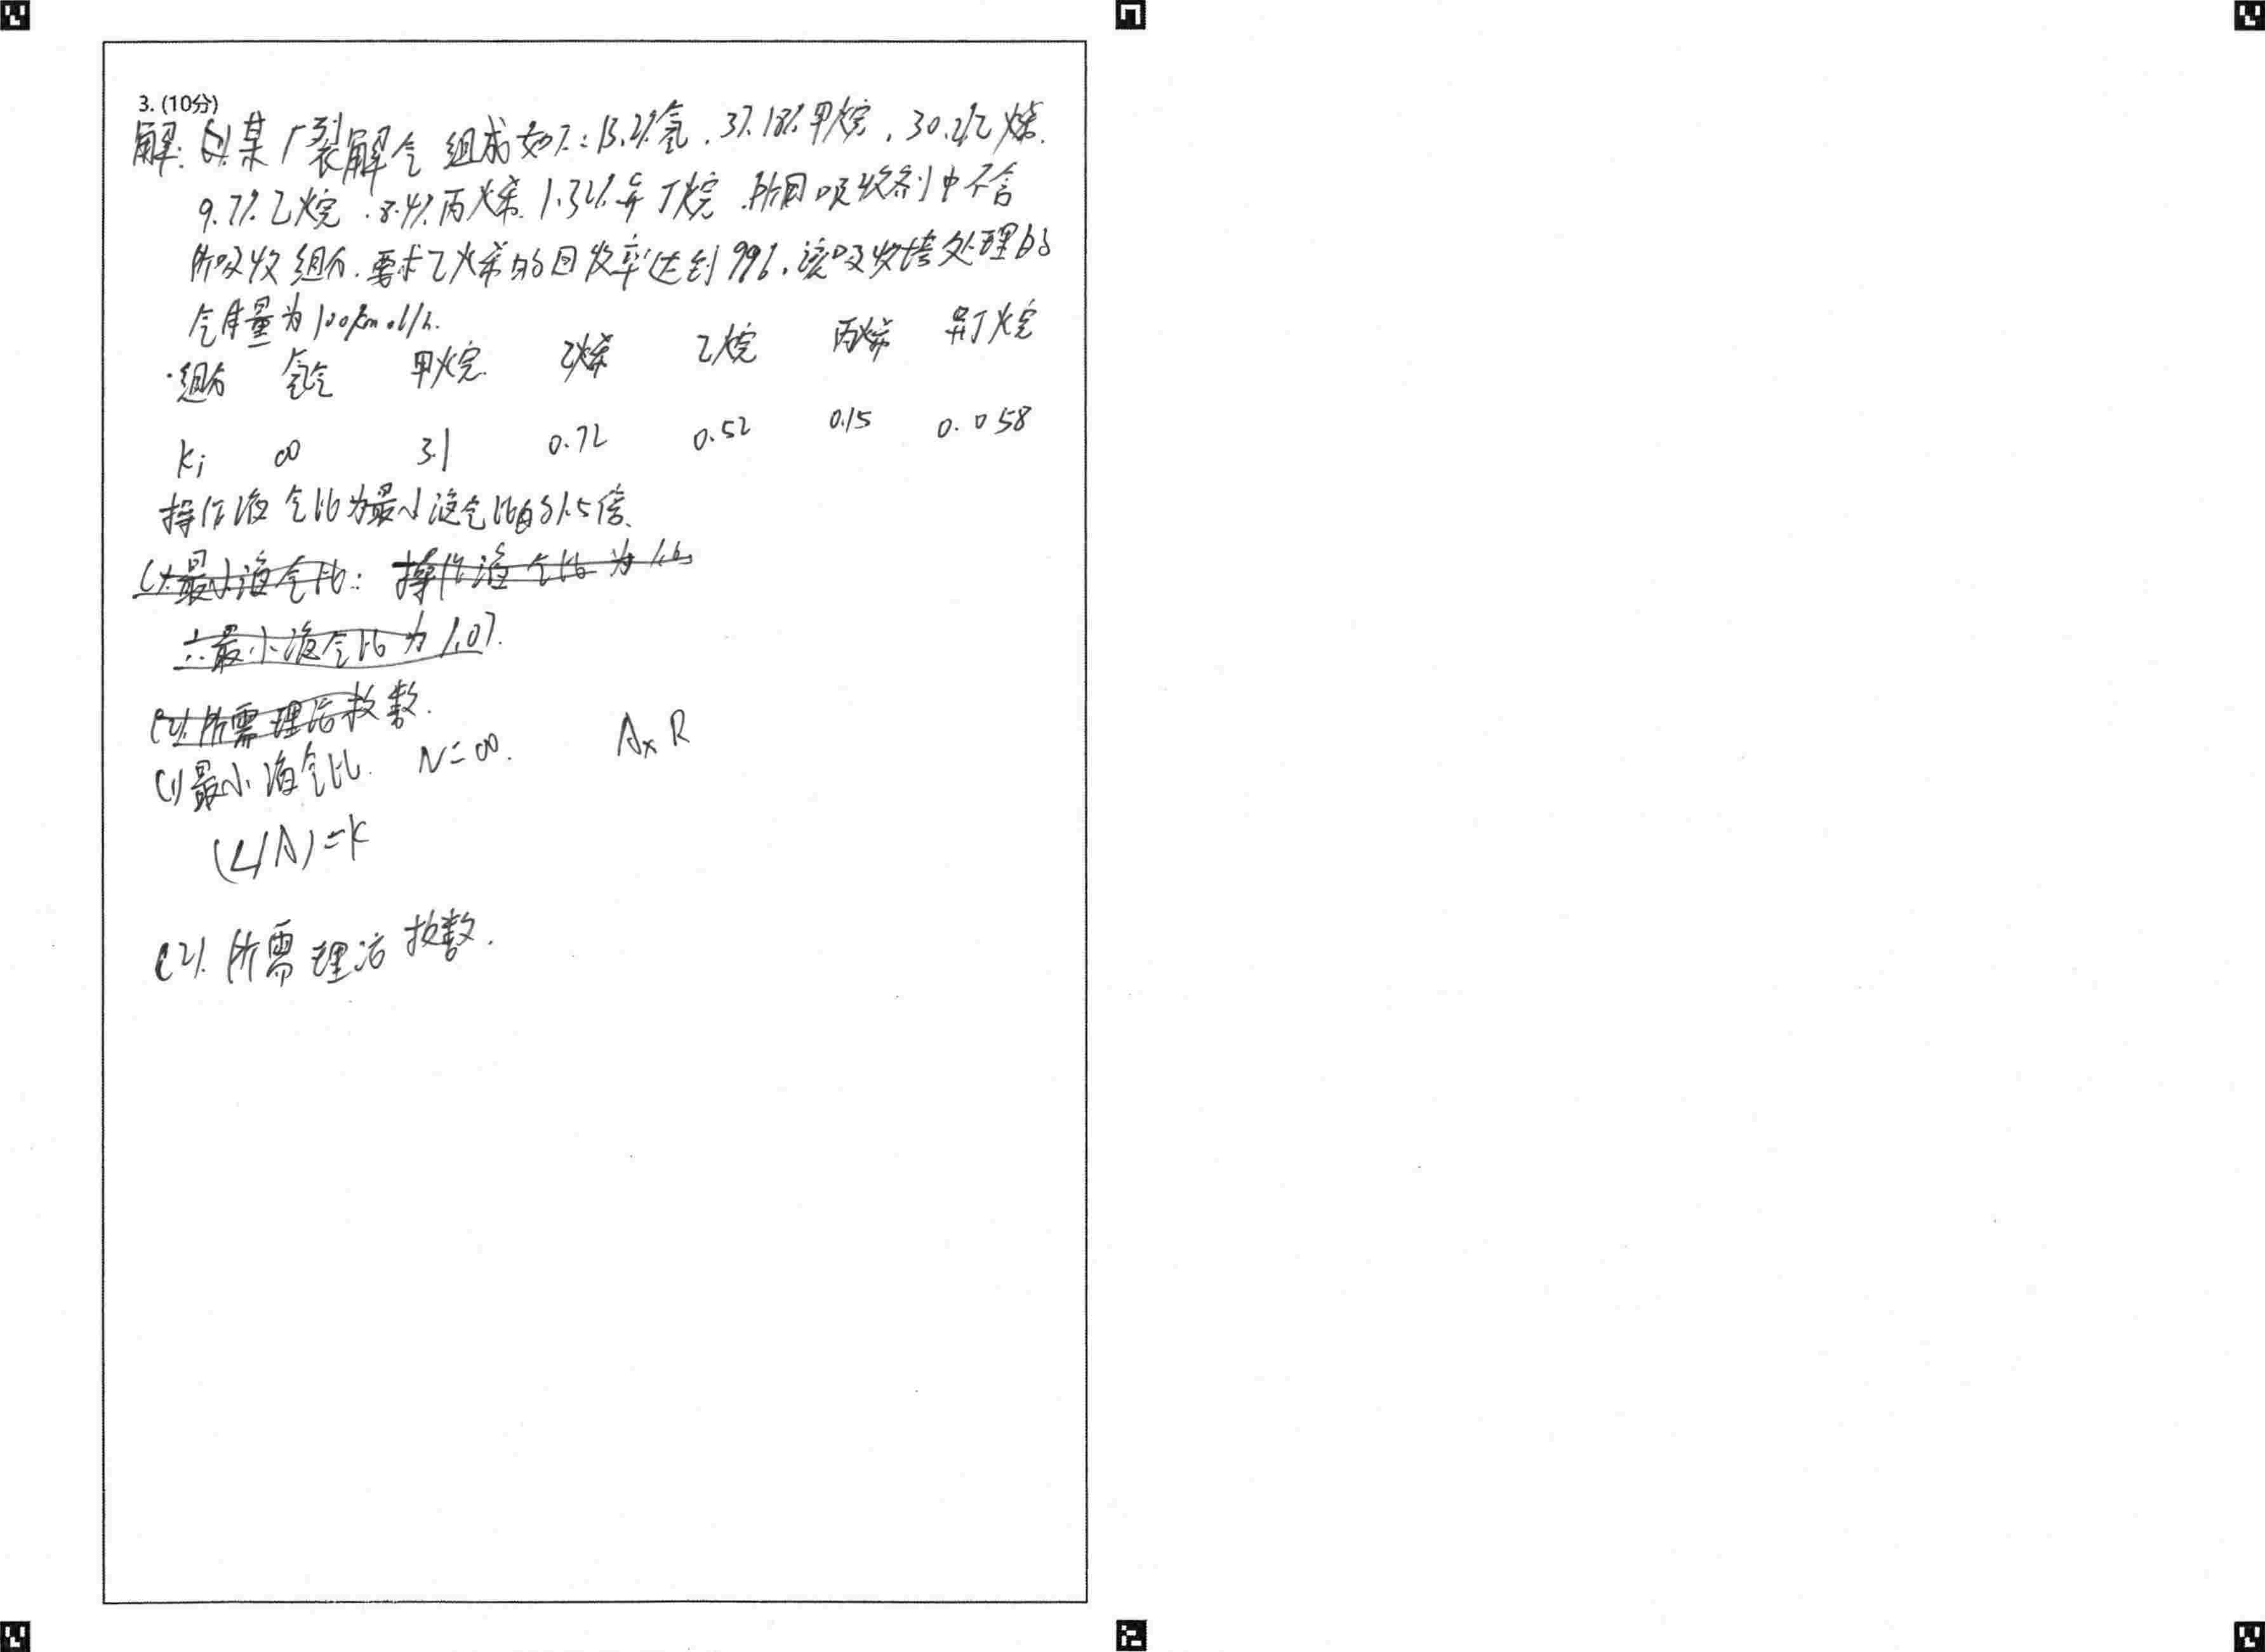 3. (10分)
解: 某厂裂解气组成如下: 13.2%氢. 37.18%甲烷, 30.2%乙烯.
9.7%乙烷. 8.4%丙烯. 1.32%异丁烷. 所用吸收剂中不含
所吸收组分. 要求乙烯的回收率达到99%. 该吸收塔处理的
气体量为100kmol/h.
组分 氢气 甲烷. 乙烯 乙烷 丙烯 异丁烷
Ki ∞ 3.1 0.72 0.52 0.15 0.058
操作液气比为最小液气比的1.5倍.
(1).最小液气比: 操作液气比为1.6
∴最小液气比为1.07.
(2).所需理论板数.
(1)最小液气比. N=∞. A× R
(L/A)=K
(2). 所需理论板数.